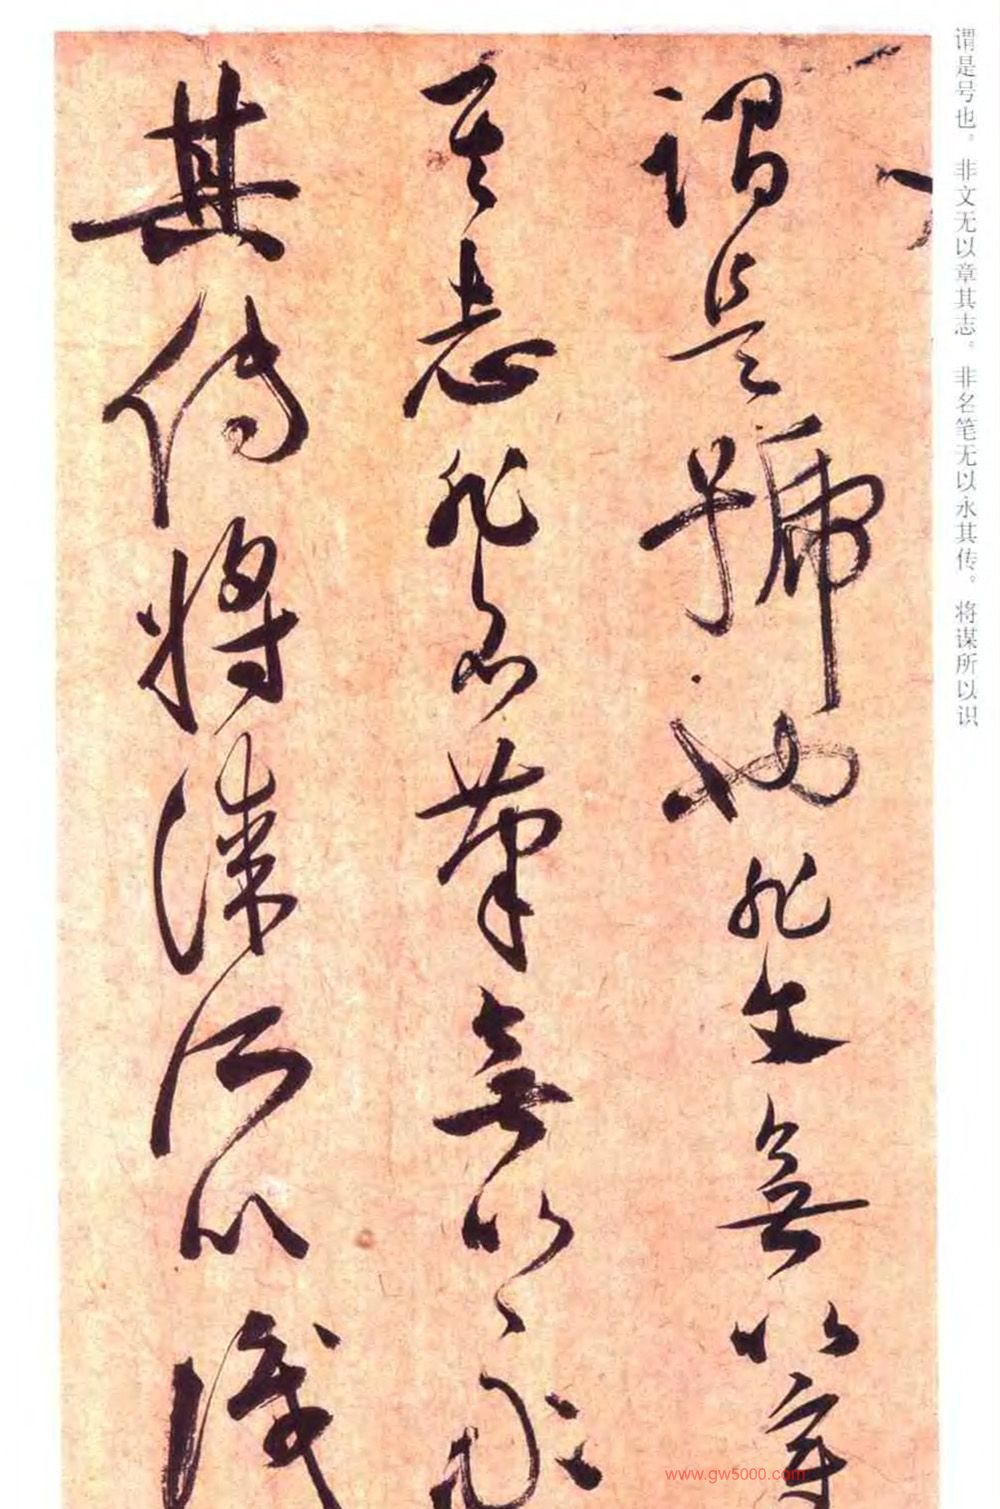 谓是号也。非文无以章其志。非名笔无以永其传。将谋所以识
謂是號也非文無以章
其志非名筆無以永
其傳將謀所以識
www.gw5000.com